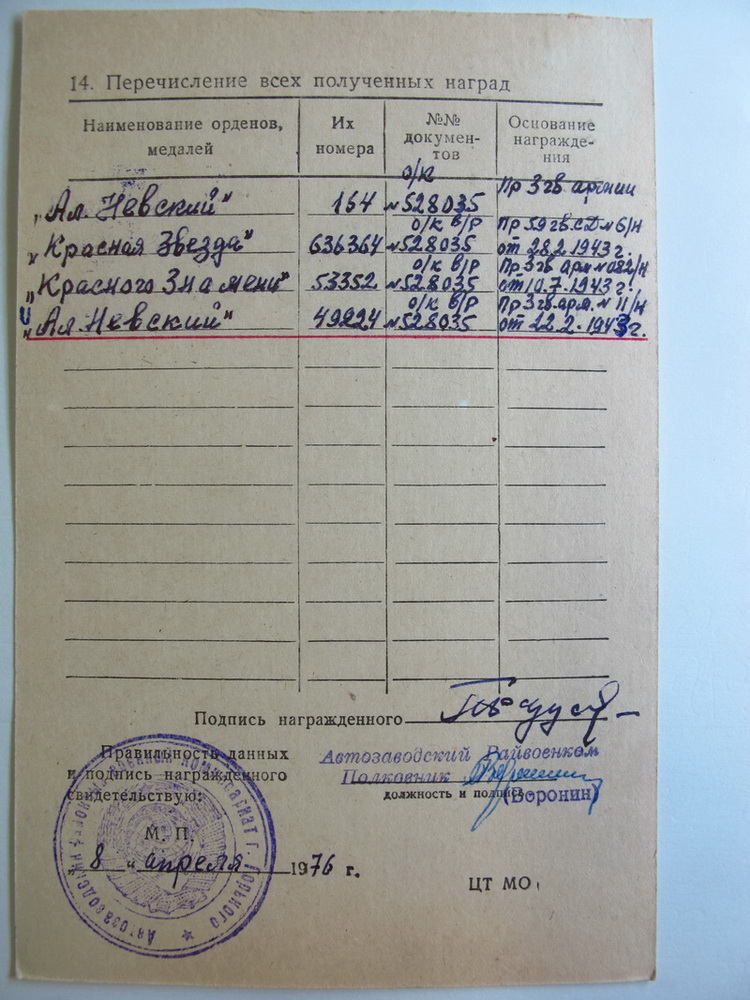 14. Перечисление всех полученных наград
Наименование орденов, медалей
Их номера
№№ докумен-тов
Основание награжде-ния
„Ал. Невский" 164 о/к №528035 Пр 3 гв армии
„Красная Звезда" 636364 о/к в/р №528035 Пр 59 гв. СД №6/н от 28.2.1943 г.
„Красного Знамени" 53352 о/к в/р №528035 Пр 3 гв арм №082/н от 10.7.1943 г.
„Ал. Невский" 49224 о/к в/р №528035 Пр 3 гв. арм. №11/н от 22.2.1943 г.
Подпись награжденного
Правильность данных
и подпись награжденного
свидетельствую:
Автозаводский Райвоенком
Полковник
должность и подпись
(Воронин)
М. П.
„8" апреля 1976 г.
ЦТ МО
Автозаводский районный военный комиссариат г. Горького